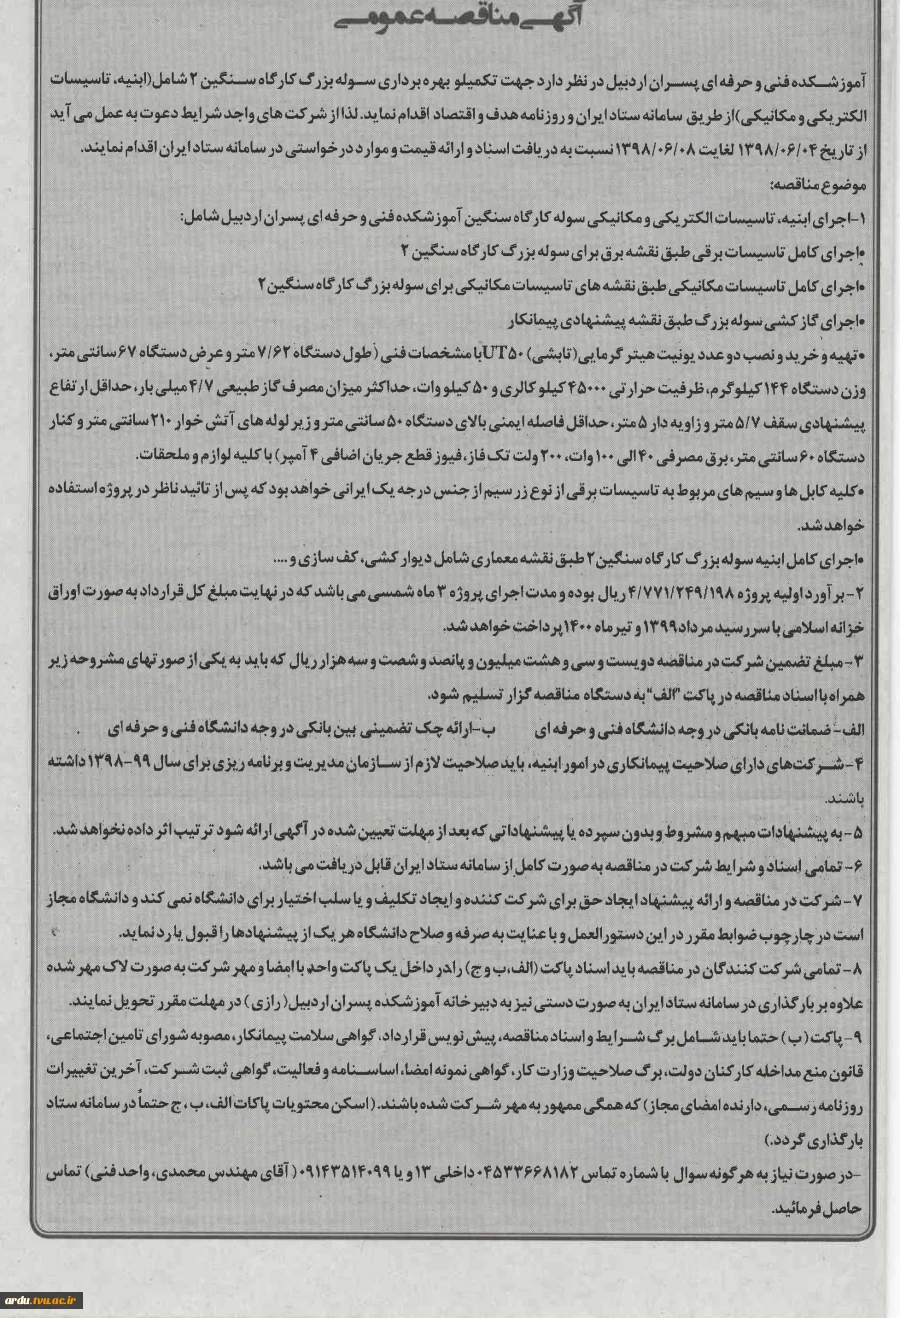 آگهی مناقصه عمومی
آموزشکده فنی و حرفه ای پسران اردبیل در نظر دارد جهت تکمیلو بهره برداری سوله بزرگ کارگاه سنگین ۲ شامل(ابنیه، تاسیسات
الکتریکی و مکانیکی)از طریق سامانه ستاد ایران و روزنامه هدف و اقتصاد اقدام نماید.لذا از شرکت های واجد شرایط دعوت به عمل می آید
از تاریخ ۱۳۹۸/۰۶/۰۴ لغایت ۱۳۹۸/۰۶/۰۸ نسبت به دریافت اسناد و ارائه قیمت و موارد درخواستی در سامانه ستاد ایران اقدام نمایند.
موضوع مناقصه:
۱-اجرای ابنیه، تاسیسات الکتریکی و مکانیکی سوله کارگاه سنگین آموزشکده فنی و حرفه ای پسران اردبیل شامل:
•اجرای کامل تاسیسات برقی طبق نقشه برق برای سوله بزرگ کارگاه سنگین ۲
•اجرای کامل تاسیسات مکانیکی طبق نقشه های تاسیسات مکانیکی برای سوله بزرگ کارگاه سنگین۲
•اجرای گاز کشی سوله بزرگ طبق نقشه پیشنهادی پیمانکار
•تهیه و خرید و نصب دو عدد یونیت هیتر گرمایی(تابشی) UT۵۰با مشخصات فنی (طول دستگاه ۷/۶۲ متر و عرض دستگاه ۶۷ سانتی متر،
وزن دستگاه ۱۴۴ کیلوگرم، ظرفیت حرارتی ۴۵۰۰۰ کیلو کالری و ۵۰ کیلو وات، حداکثر میزان مصرف گاز طبیعی ۴/۷ میلی بار، حداقل ارتفاع
پیشنهادی سقف ۵/۷ متر و زاویه دار ۵ متر، حداقل فاصله ایمنی بالای دستگاه ۵۰ سانتی متر و زیر لوله های آتش خوار ۲۱۰ سانتی متر و کنار
دستگاه ۶۰ سانتی متر، برق مصرفی ۴۰ الی ۱۰۰ وات، ۲۰۰ ولت تک فاز، فیوز قطع جریان اضافی ۴ آمپر) با کلیه لوازم و ملحقات.
•کلیه کابل ها و سیم های مربوط به تاسیسات برقی از نوع زر سیم از جنس درجه یک ایرانی خواهد بود که پس از تائید ناظر در پروژه استفاده
خواهد شد.
•اجرای کامل ابنیه سوله بزرگ کارگاه سنگین ۲ طبق نقشه معماری شامل دیوار کشی، کف سازی و ....
۲-برآورد اولیه پروژه ۴/۷۷۱/۲۴۹/۱۹۸ ریال بوده و مدت اجرای پروژه ۳ ماه شمسی می باشد که در نهایت مبلغ کل قرارداد به صورت اوراق
خزانه اسلامی با سررسید مرداد۱۳۹۹ و تیرماه ۱۴۰۰ پرداخت خواهد شد.
۳-مبلغ تضمین شرکت در مناقصه دویست و سی و هشت میلیون و پانصد و شصت و سه هزار ریال که باید به یکی از صورتهای مشروحه زیر
همراه با اسناد مناقصه در پاکت "الف" به دستگاه مناقصه گزار تسلیم شود.
الف- ضمانت نامه بانکی در وجه دانشگاه فنی و حرفه ای     ب-ارائه چک تضمینی بین بانکی در وجه دانشگاه فنی و حرفه ای
۴-شرکت‌های دارای صلاحیت پیمانکاری در امور ابنیه، باید صلاحیت لازم از سازمان مدیریت و برنامه ریزی برای سال ۹۹-۱۳۹۸ داشته
باشند.
۵- به پیشنهادات مبهم و مشروط و بدون سپرده یا پیشنهاداتی که بعد از مهلت تعیین شده در آگهی ارائه شود ترتیب اثر داده نخواهد شد.
۶- تمامی اسناد و شرایط شرکت در مناقصه به صورت کامل از سامانه ستاد ایران قابل دریافت می باشد.
۷- شرکت در مناقصه و ارائه پیشنهاد ایجاد حق برای شرکت کننده و ایجاد تکلیف و یا سلب اختیار برای دانشگاه نمی کند و دانشگاه مجاز
است در چارچوب ضوابط مقرر در این دستورالعمل و با عنایت به صرفه و صلاح دانشگاه هر یک از پیشنهادها را قبول یا رد نماید.
۸- تمامی شرکت کنندگان در مناقصه باید اسناد پاکت (الف،ب و ج) رادر داخل یک پاکت واحد با امضا و مهر شرکت به صورت لاک مهر شده
علاوه بر بارگذاری در سامانه ستاد ایران به صورت دستی نیز به دبیرخانه آموزشکده پسران اردبیل( رازی) در مهلت مقرر تحویل نمایند.
۹- پاکت( ب) حتما باید شامل برگ شرایط و اسناد مناقصه، پیش نویس قرارداد، گواهی سلامت پیمانکار، مصوبه شورای تامین اجتماعی،
قانون منع مداخله کارکنان دولت، برگ صلاحیت وزارت کار، گواهی نمونه امضا، اساسنامه و فعالیت، گواهی ثبت شرکت، آخرین تغییرات
روزنامه رسمی، دارنده امضای مجاز) که همگی ممهور به مهر شرکت شده باشند. (اسکن محتویات پاکات الف، ب، ج حتماً در سامانه ستاد
بارگذاری گردد.)
-در صورت نیاز به هرگونه سوال با شماره تماس ۰۴۵۳۳۶۶۸۱۸۲ داخلی ۱۳ و یا ۰۹۱۴۳۵۱۴۰۹۹( آقای مهندس محمدی، واحد فنی) تماس
حاصل فرمائید.
ardu.tvu.ac.ir